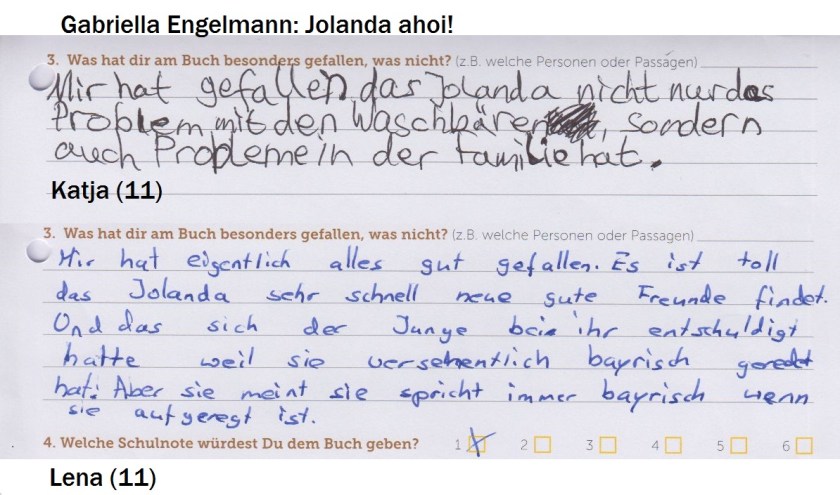 Gabriella Engelmann: Jolanda ahoi!
3. Was hat dir am Buch besonders gefallen, was nicht? (z.B. welche Personen oder Passagen)
Mir hat gefallen das Jolanda nicht nur das
Problem mit den Waschbären, sondern
auch Probleme in der Familie hat.
Katja (11)
3. Was hat dir am Buch besonders gefallen, was nicht? (z.B. welche Personen oder Passagen)
Mir hat eigentlich alles gut gefallen. Es ist toll
das Jolanda sehr schnell neue gute Freunde findet.
Und das sich der Junge bei ihr entschuldigt
hatte weil sie versehentlich bayrisch geredet
hat. Aber sie meint sie spricht immer bayrisch wenn
sie aufgeregt ist.
4. Welche Schulnote würdest Du dem Buch geben? 1 2 3 4 5 6
Lena (11)